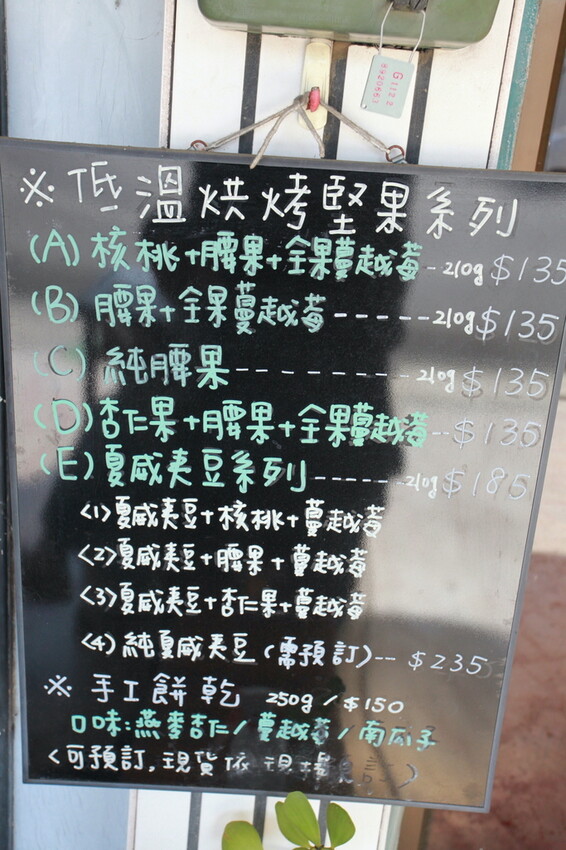 ※低溫烘烤堅果系列
(A)核桃+腰果+全果蔓越莓-210g $135
(B)腰果+全果蔓越莓-----210g $135
(C)純腰果--------210g $135
(D)杏仁果+腰果+全果蔓越莓--$135
(E)夏威夷豆系列-----210g $185
<1>夏威夷豆+核桃+蔓越莓
<2>夏威夷豆+腰果+蔓越莓
<3>夏威夷豆+杏仁果+蔓越莓
<4>純夏威夷豆(需預訂)--$235
※手工餅乾 250g/$150
口味:燕麥杏仁/蔓越莓/南瓜子
<可預訂,現貨依現場